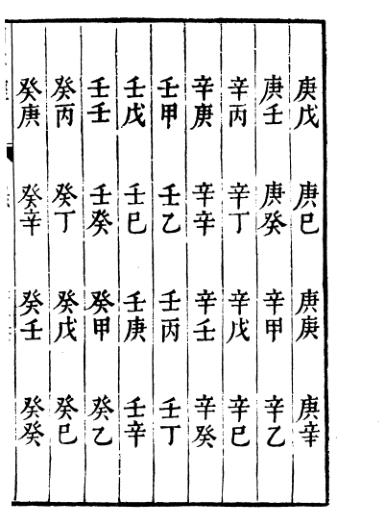 庚戊 庚巳 庚庚 庚辛
庚壬 庚癸 辛甲 辛乙
辛丙 辛丁 辛戊 辛巳
辛庚 辛辛 辛壬 辛癸
壬甲 壬乙 壬丙 壬丁
壬戊 壬巳 壬庚 壬辛
壬壬 壬癸 癸甲 癸乙
癸丙 癸丁 癸戊 癸巳
癸庚 癸辛 癸壬 癸癸